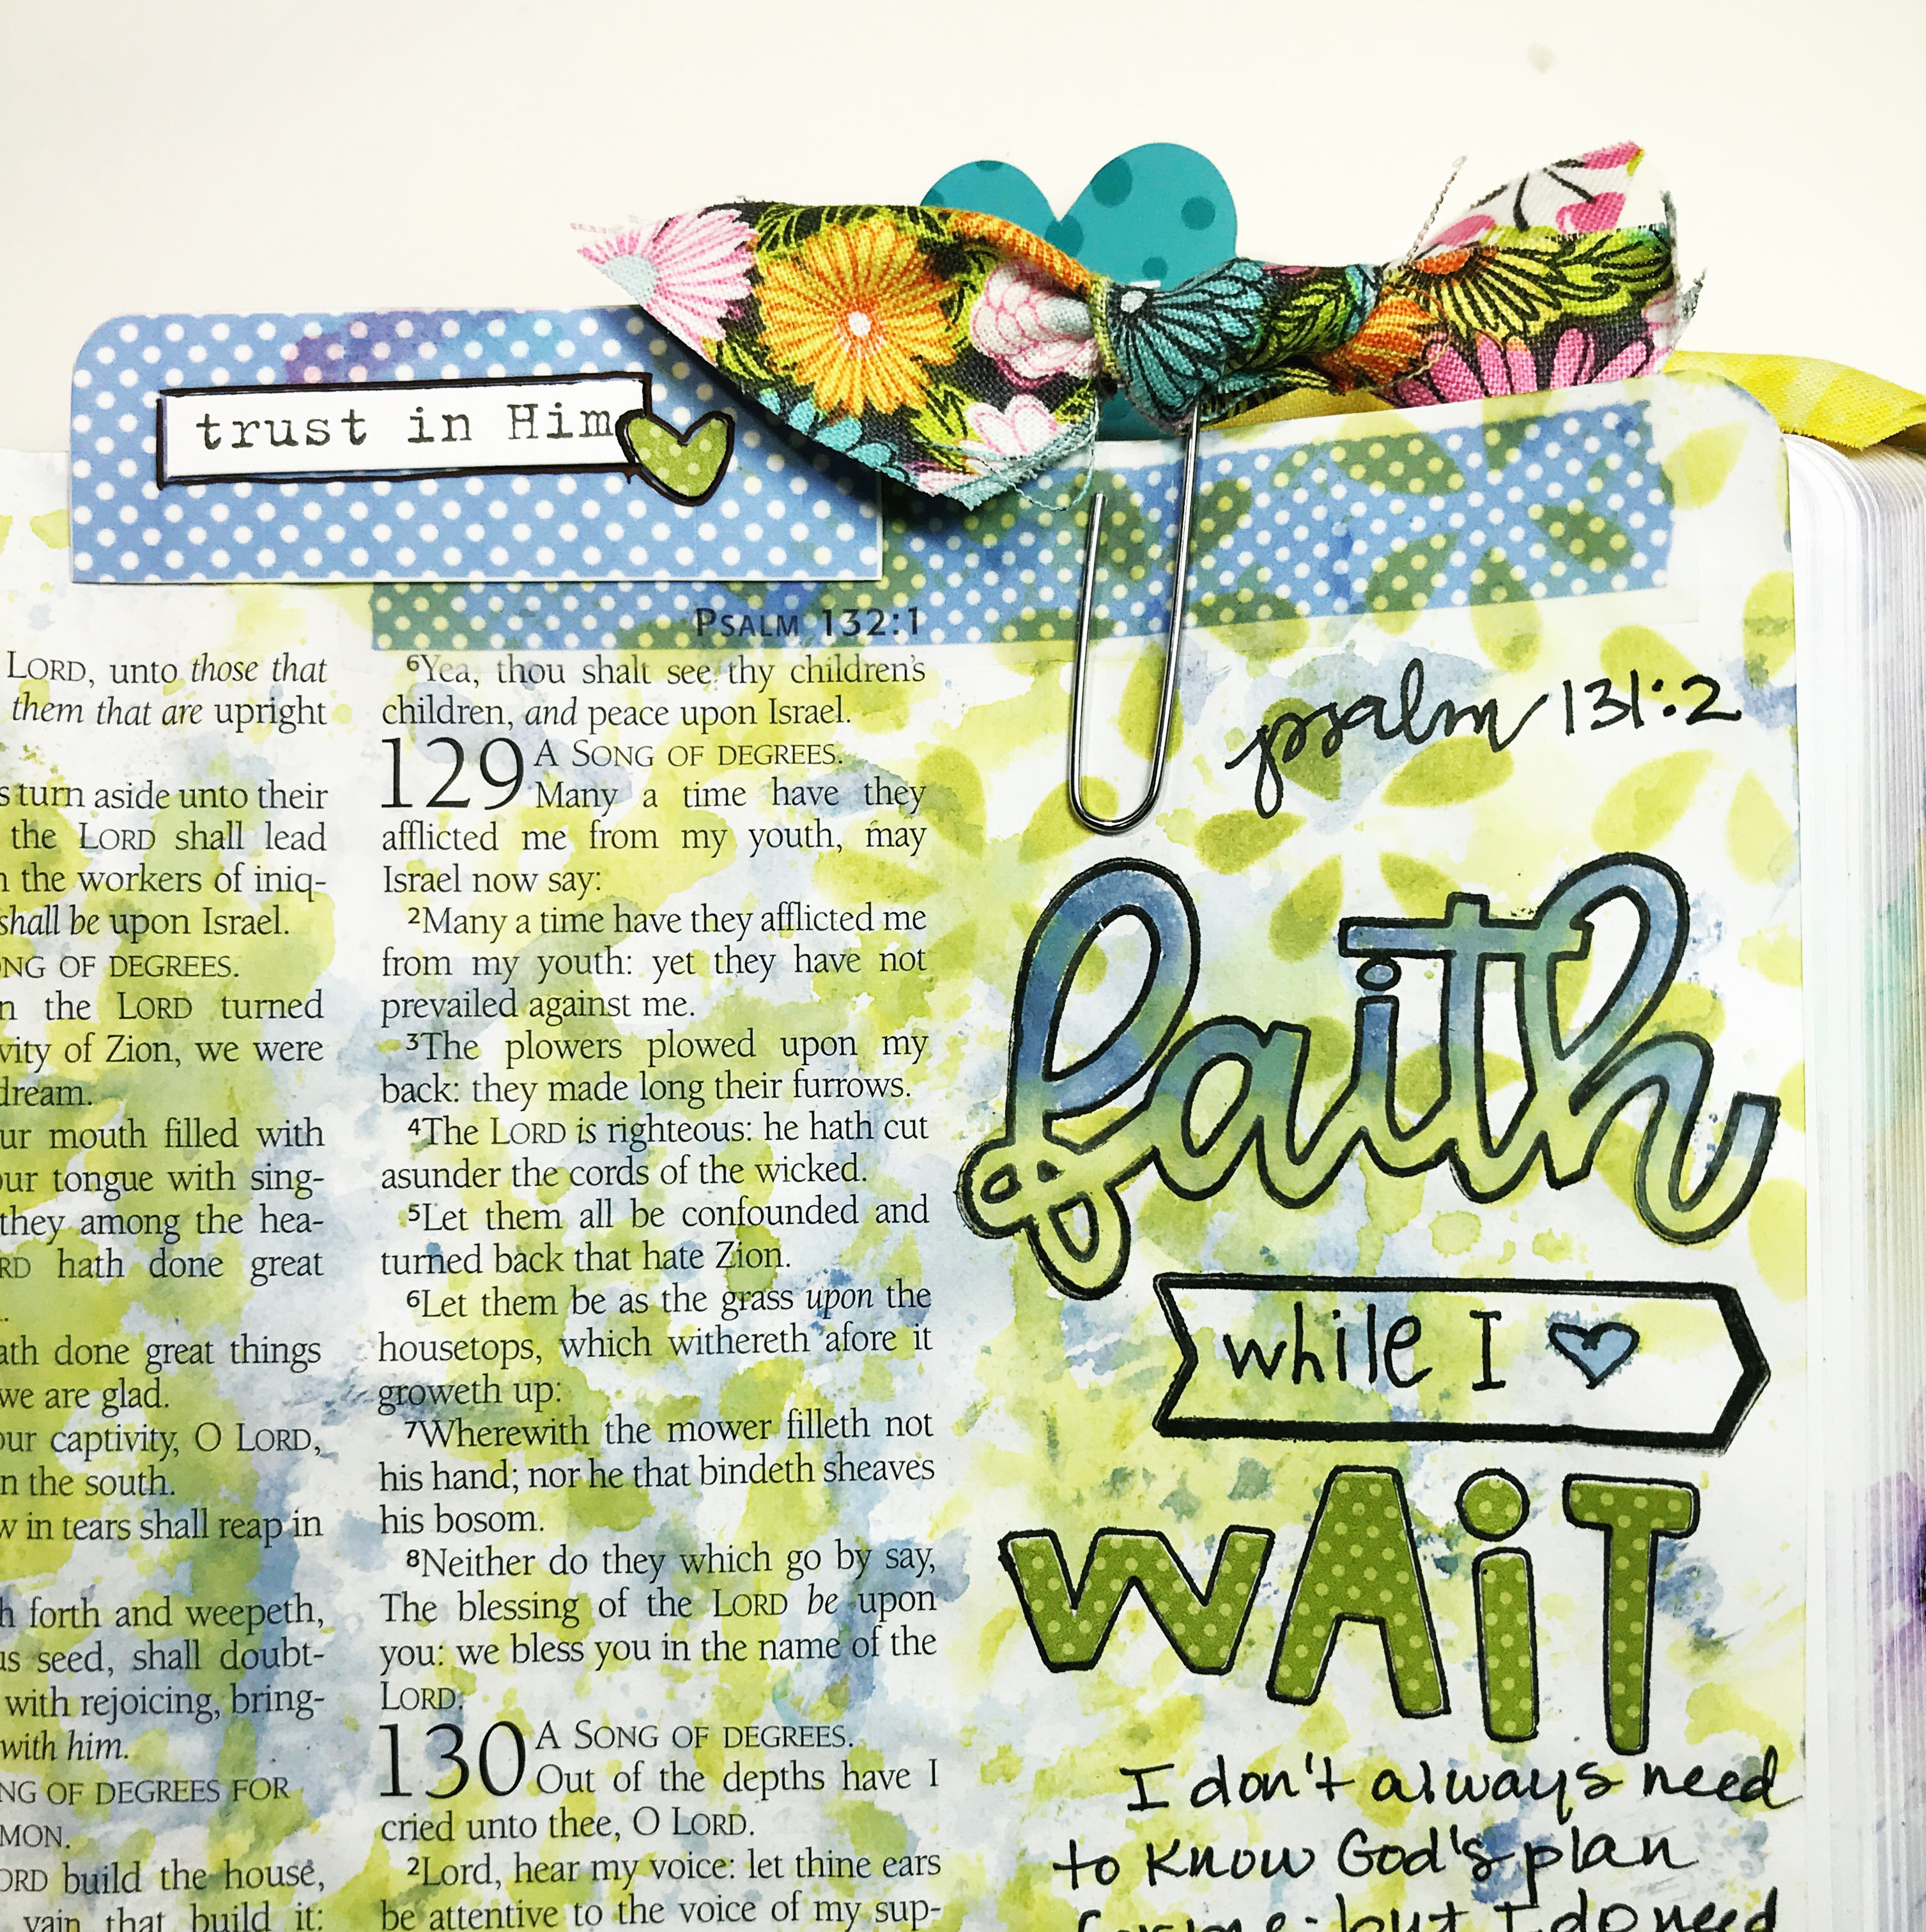 trust in Him
PSALM 132:1
LORD, unto those that
them that are upright
turn aside unto their
the LORD shall lead
the workers of iniq-
shall be upon Israel.
OF DEGREES.
the LORD turned
of Zion, we were
dream.
mouth filled with
tongue with sing-
they among the hea-
hath done great
done great things
we are glad.
captivity, O LORD,
in the south.
in tears shall reap in
forth and weepeth,
seed, shall doubt-
with rejoicing, bring-
with him.
OF DEGREES FOR
build the house,
vain that build it:
6Yea, thou shalt see thy children's
children, and peace upon Israel.
129 A SONG OF DEGREES.
Many a time have they
afflicted me from my youth, may
Israel now say:
2Many a time have they afflicted me
from my youth: yet they have not
prevailed against me.
3The plowers plowed upon my
back: they made long their furrows.
4The LORD is righteous: he hath cut
asunder the cords of the wicked.
5Let them all be confounded and
turned back that hate Zion.
6Let them be as the grass upon the
housetops, which withereth afore it
groweth up:
7Wherewith the mower filleth not
his hand; nor he that bindeth sheaves
his bosom.
8Neither do they which go by say,
The blessing of the LORD be upon
you: we bless you in the name of the
LORD.
130 A SONG OF DEGREES.
Out of the depths have I
cried unto thee, O LORD.
2Lord, hear my voice: let thine ears
be attentive to the voice of my sup-
psalm 131:2
faith
while I
WAiT
I don't always need
to know God's plan
but I do need